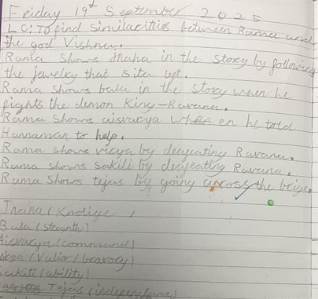 Friday 19th September 2025
LC: To find similarities between Rama and
the god Vishnu.
Rama shows jnana in the story by following
the jewelry that Sita left.
Rama shows bala in the story when he
fights the demon king-Ravana.
Rama shows aisvarya when he told
Hannaman to help.
Rama shows virya by defeating Ravana.
Rama shows sakti by defeating Ravana.
Rama shows tejas by going across the
Jnana (
Bala (strength)
(command)
(Valor/bravery)
(ability)
Tejas (